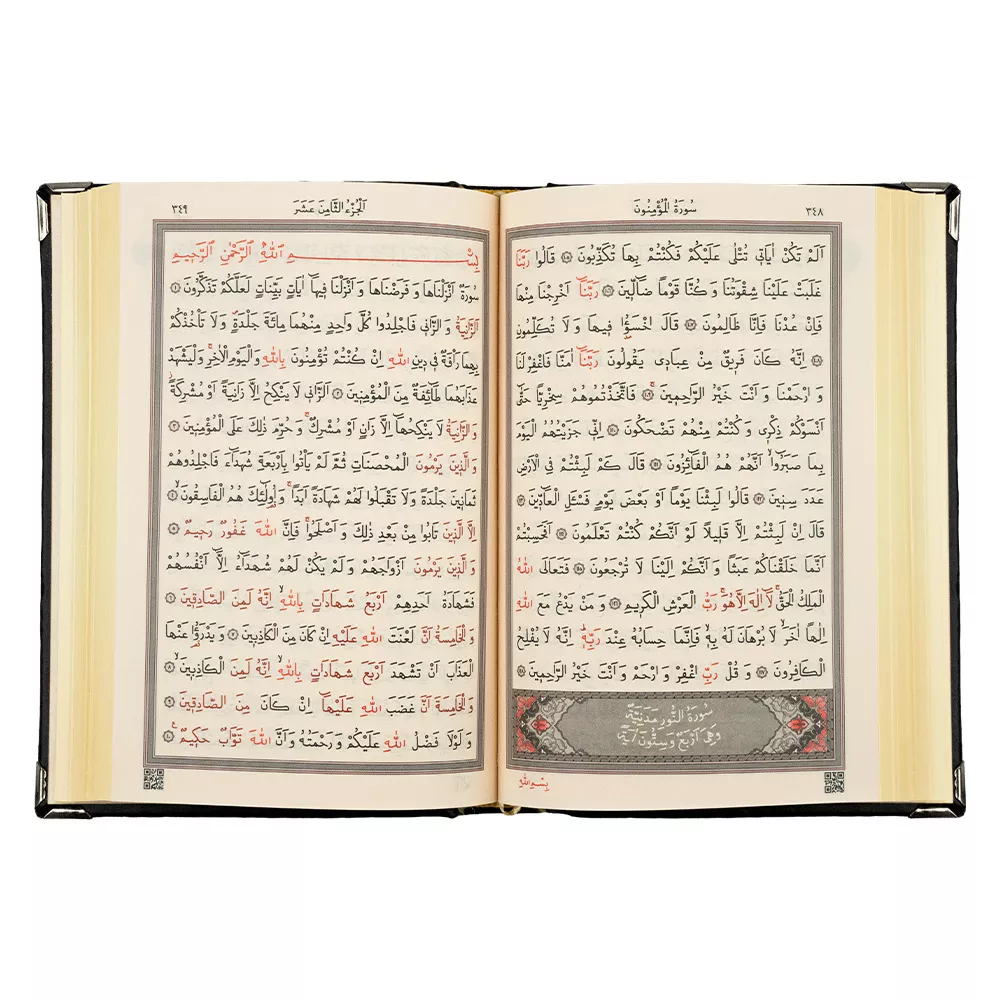 ٣٤٨
سُورَةُ الْمُؤْمِنُونَ
اَلَمْ تَكُنْ اٰيَات۪ي تُتْلٰى عَلَيْكُمْ فَكُنْتُمْ بِهَا تُكَذِّبُونَ ﴿١٠٥﴾ قَالُوا رَبَّنَا
غَلَبَتْ عَلَيْنَا شِقْوَتُنَا وَ كُنَّا قَوْمًا ضَٓالّ۪ينَ ﴿١٠٦﴾ رَبَّنَٓا اَخْرِجْنَا مِنْهَا
فَاِنْ عُدْنَا فَاِنَّا ظَالِمُونَ ﴿١٠٧﴾ قَالَ اخْسَؤُ۫ا ف۪يهَا وَ لَا تُكَلِّمُونِ
﴿١٠٨﴾ اِنَّهُ كَانَ فَر۪يقٌ مِنْ عِبَاد۪ي يَقُولُونَ رَبَّنَٓا اٰمَنَّا فَاغْفِرْ لَنَا
وَ ارْحَمْنَا وَ اَنْتَ خَيْرُ الرَّاحِم۪ينَ ﴿١٠٩﴾ فَاتَّخَذْتُمُوهُمْ سِخْرِيًّا حَتّٰٓى
اَنْسَوْكُمْ ذِكْر۪ي وَ كُنْتُمْ مِنْهُمْ تَضْحَكُونَ ﴿١١٠﴾ اِنّ۪ي جَزَيْتُهُمُ الْيَوْمَ
بِمَا صَبَرُٓوا اَنَّهُمْ هُمُ الْفَٓائِزُونَ ﴿١١١﴾ قَالَ كَمْ لَبِثْتُمْ فِي الْاَرْضِ
عَدَدَ سِن۪ينَ ﴿١١٢﴾ قَالُوا لَبِثْنَا يَوْمًا اَوْ بَعْضَ يَوْمٍ فَسْـَٔلِ الْعَٓادّ۪ينَ ﴿١١٣﴾
قَالَ اِنْ لَبِثْتُمْ اِلَّا قَل۪يلًا لَوْ اَنَّكُمْ كُنْتُمْ تَعْلَمُونَ ﴿١١٤﴾ اَفَحَسِبْتُمْ
اَنَّمَا خَلَقْنَاكُمْ عَبَثًا وَ اَنَّكُمْ اِلَيْنَا لَا تُرْجَعُونَ ﴿١١٥﴾ فَتَعَالَى اللّٰهُ
الْمَلِكُ الْحَقُّۚ لَٓا اِلٰهَ اِلَّا هُوَۚ رَبُّ الْعَرْشِ الْكَر۪يمِ ﴿١١٦﴾ وَ مَنْ يَدْعُ مَعَ اللّٰهِ
اِلٰهًا اٰخَرَۙ لَا بُرْهَانَ لَهُ بِه۪ۙ فَاِنَّمَا حِسَابُهُ عِنْدَ رَبِّه۪ۜ اِنَّهُ لَا يُفْلِحُ
الْكَافِرُونَ ﴿١١٧﴾ وَ قُلْ رَبِّ اغْفِرْ وَ ارْحَمْ وَ اَنْتَ خَيْرُ الرَّاحِم۪ينَ ﴿١١٨﴾
سُورَةُ النُّورِ مَدَنِيَّةٌ
وَهِيَ اَرْبَعٌ وَ سِتُّونَ اٰيَةً
بِسْمِ اللّٰهِ
اَلْجُزْءُ الثَّامِنَ عَشَرَ
٣٤٩
بِسْمِ اللّٰهِ الرَّحْمٰنِ الرَّح۪يمِ
سُورَةٌ اَنْزَلْنَاهَا وَ فَرَضْنَاهَا وَ اَنْزَلْنَا ف۪يهَٓا اٰيَاتٍ بَيِّنَاتٍ لَعَلَّكُمْ تَذَكَّرُونَ ﴿١﴾
اَلزَّانِيَةُ وَ الزَّان۪ي فَاجْلِدُوا كُلَّ وَاحِدٍ مِنْهُمَا مِائَةَ جَلْدَةٍۖ وَ لَا تَأْخُذْكُمْ
بِهِمَا رَأْفَةٌ ف۪ي د۪ينِ اللّٰهِ اِنْ كُنْتُمْ تُؤْمِنُونَ بِاللّٰهِ وَ الْيَوْمِ الْاٰخِرِۚ وَ لْيَشْهَدْ
عَذَابَهُمَا طَٓائِفَةٌ مِنَ الْمُؤْمِن۪ينَ ﴿٢﴾ اَلزَّان۪ي لَا يَنْكِحُ اِلَّا زَانِيَةً اَوْ مُشْرِكَةًۘ
وَ الزَّانِيَةُ لَا يَنْكِحُهَٓا اِلَّا زَانٍ اَوْ مُشْرِكٌۚ وَ حُرِّمَ ذٰلِكَ عَلَى الْمُؤْمِن۪ينَ ﴿٣﴾
وَ الَّذ۪ينَ يَرْمُونَ الْمُحْصَنَاتِ ثُمَّ لَمْ يَأْتُوا بِاَرْبَعَةِ شُهَدَٓاءَ فَاجْلِدُوهُمْ
ثَمَان۪ينَ جَلْدَةً وَ لَا تَقْبَلُوا لَهُمْ شَهَادَةً اَبَدًاۚ وَ اُو۬لٰٓئِكَ هُمُ الْفَاسِقُونَ ﴿٤﴾
اِلَّا الَّذ۪ينَ تَابُوا مِنْ بَعْدِ ذٰلِكَ وَ اَصْلَحُواۚ فَاِنَّ اللّٰهَ غَفُورٌ رَح۪يمٌ ﴿٥﴾
وَ الَّذ۪ينَ يَرْمُونَ اَزْوَاجَهُمْ وَ لَمْ يَكُنْ لَهُمْ شُهَدَٓاءُ اِلَّٓا اَنْفُسُهُمْ
فَشَهَادَةُ اَحَدِهِمْ اَرْبَعُ شَهَادَاتٍ بِاللّٰهِۙ اِنَّهُ لَمِنَ الصَّادِق۪ينَ ﴿٦﴾
وَ الْخَامِسَةُ اَنَّ لَعْنَتَ اللّٰهِ عَلَيْهِ اِنْ كَانَ مِنَ الْكَاذِب۪ينَ ﴿٧﴾ وَ يَدْرَؤُ۬ا عَنْهَا
الْعَذَابَ اَنْ تَشْهَدَ اَرْبَعَ شَهَادَاتٍ بِاللّٰهِۙ اِنَّهُ لَمِنَ الْكَاذِب۪ينَۙ ﴿٨﴾
وَ الْخَامِسَةَ اَنَّ غَضَبَ اللّٰهِ عَلَيْهَٓا اِنْ كَانَ مِنَ الصَّادِق۪ينَ ﴿٩﴾
وَ لَوْلَا فَضْلُ اللّٰهِ عَلَيْكُمْ وَ رَحْمَتُهُ وَ اَنَّ اللّٰهَ تَوَّابٌ حَك۪يمٌ۟ ﴿١٠﴾